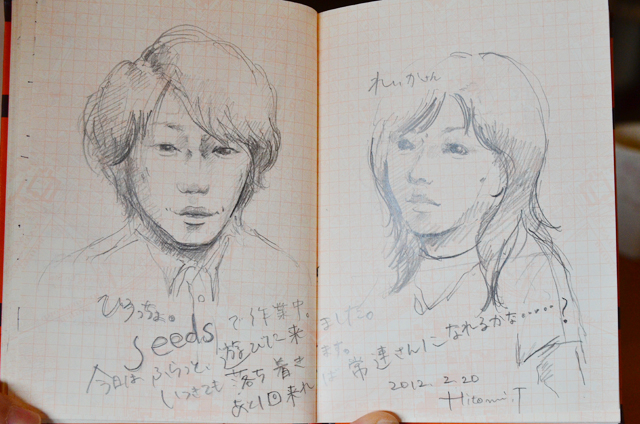 ひろっちょ。
Seeds で作業中。
れいかさん
今日は ふらっと、遊びに来ました。
いつきても 落ち着きます。
あと1回来れば 常連さんになれるかな……?
2012. 2. 20
Hitomi.T